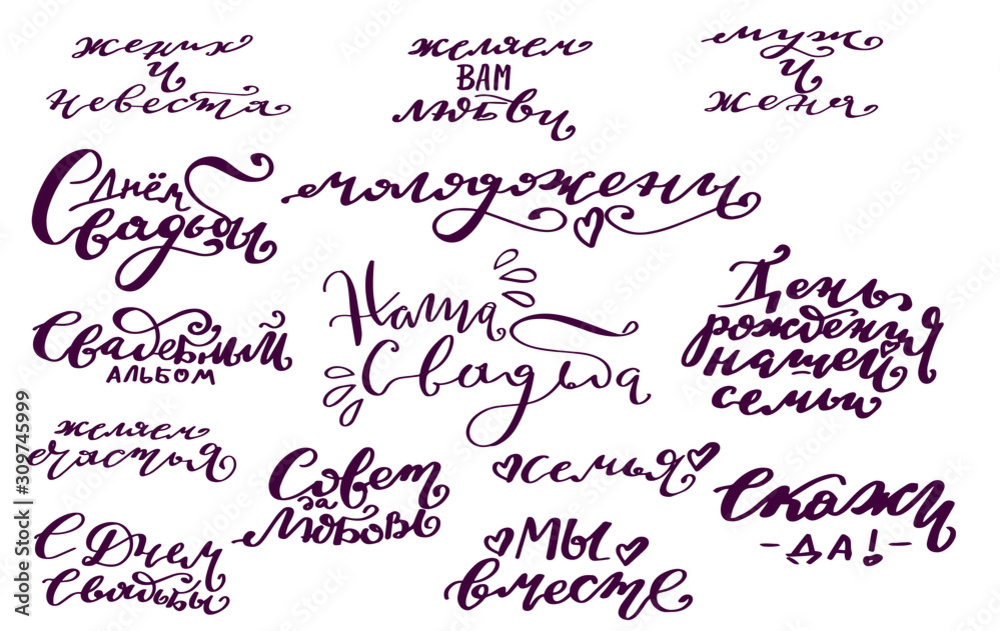 жених
и
невеста
желяем
ВАМ
любви
муж
и
женя
С днём
Свадьбы
молодожены
Свадебный
АЛЬБОМ
Наша
Свадьба
День
рождения
нашей
семьи
желяем
счастья
Совет
да
Любовь
семья
Скажи
-ДА!-
С Днем
Свадьбы
МЫ
вместе
Adobe Stock | #309745999